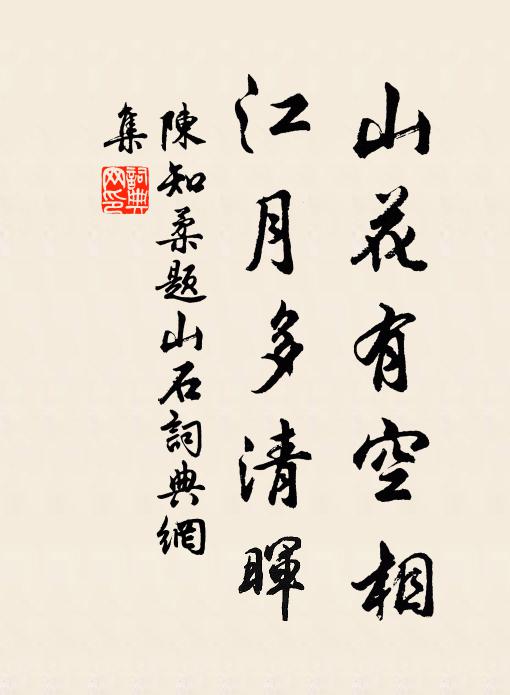 山花有空相
江月多清暉
陳知柔題山石詞典網
集
詞典網印